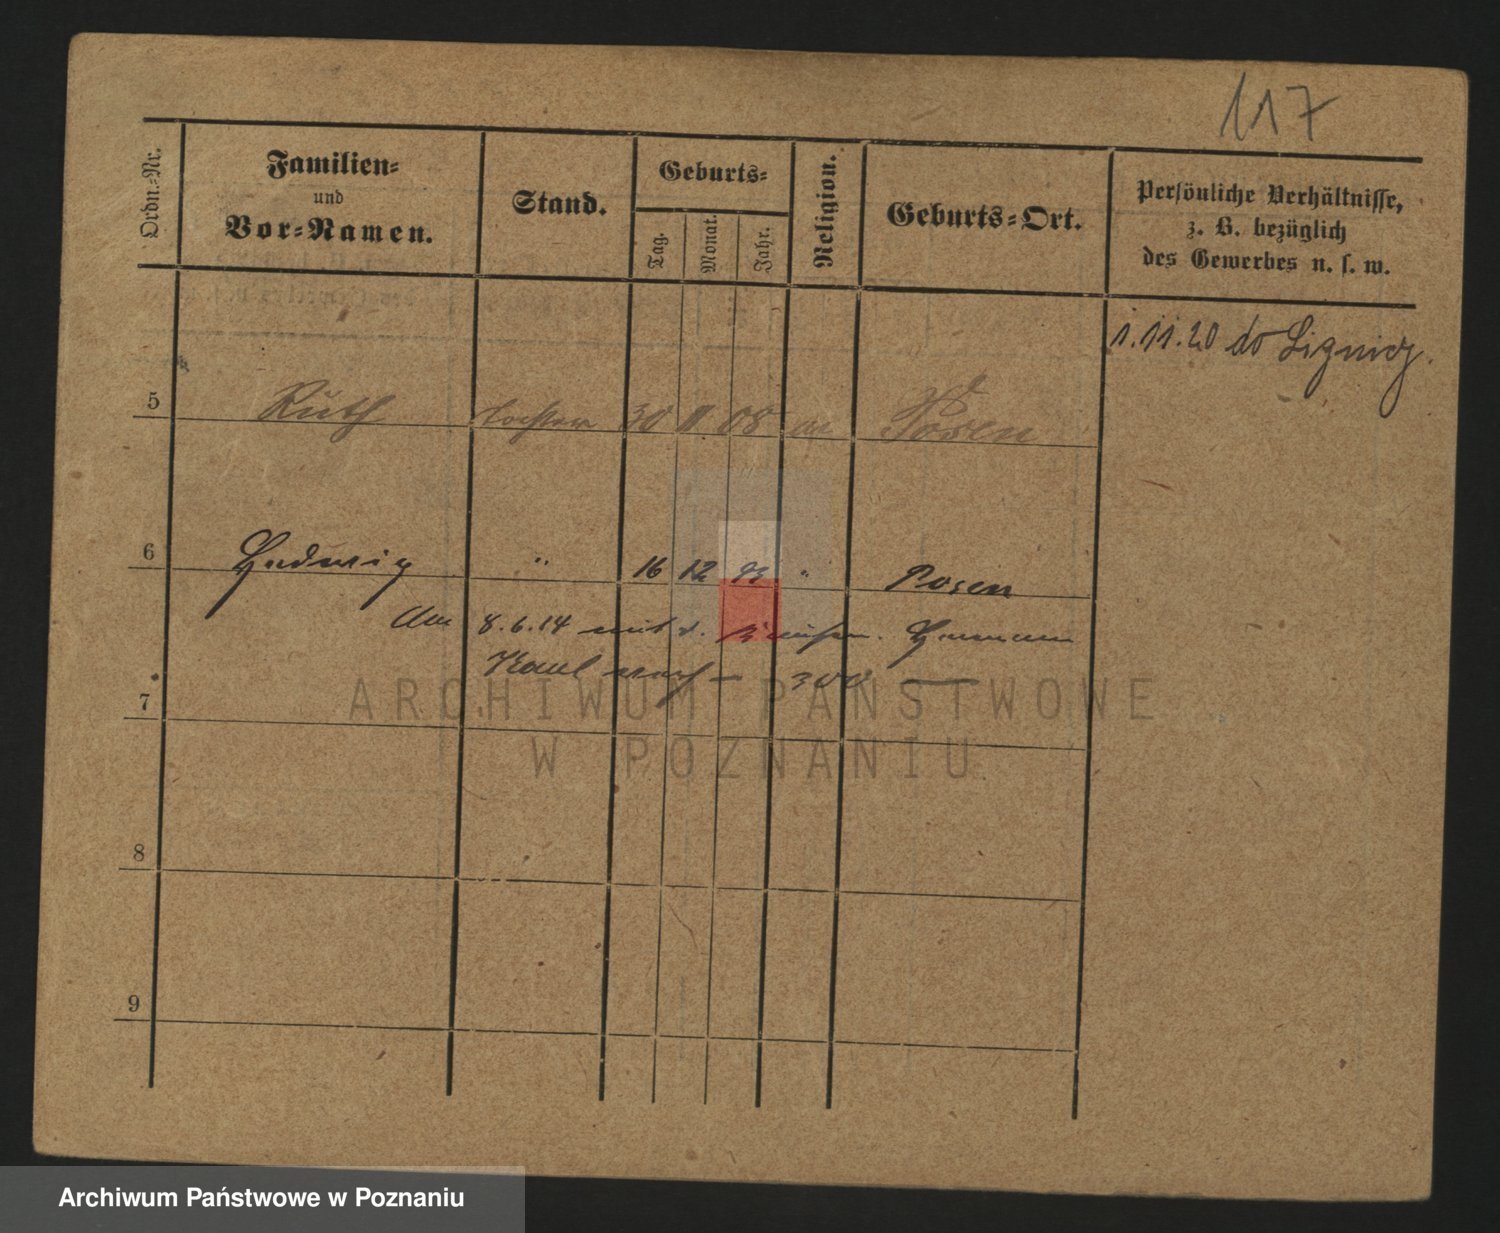 117
Ordn.-Nr.
Familien-
und
Vor-Namen.
Stand.
Geburts-
Tag.
Monat.
Jahr.
Religion.
Geburts-Ort.
Persönliche Verhältnisse,
z. B. bezüglich
des Gewerbes u. s. w.
1.11.20 do Lignicy.
5 Ruth Tochter 30 11 08 Posen
6 Hedwig " 16 12 93 " Posen
Am 8.6.14 mit d. Hermann
Kaul nach
7
ARCHIWUM PAŃSTWOWE
W POZNANIU
8
9
Archiwum Państwowe w Poznaniu